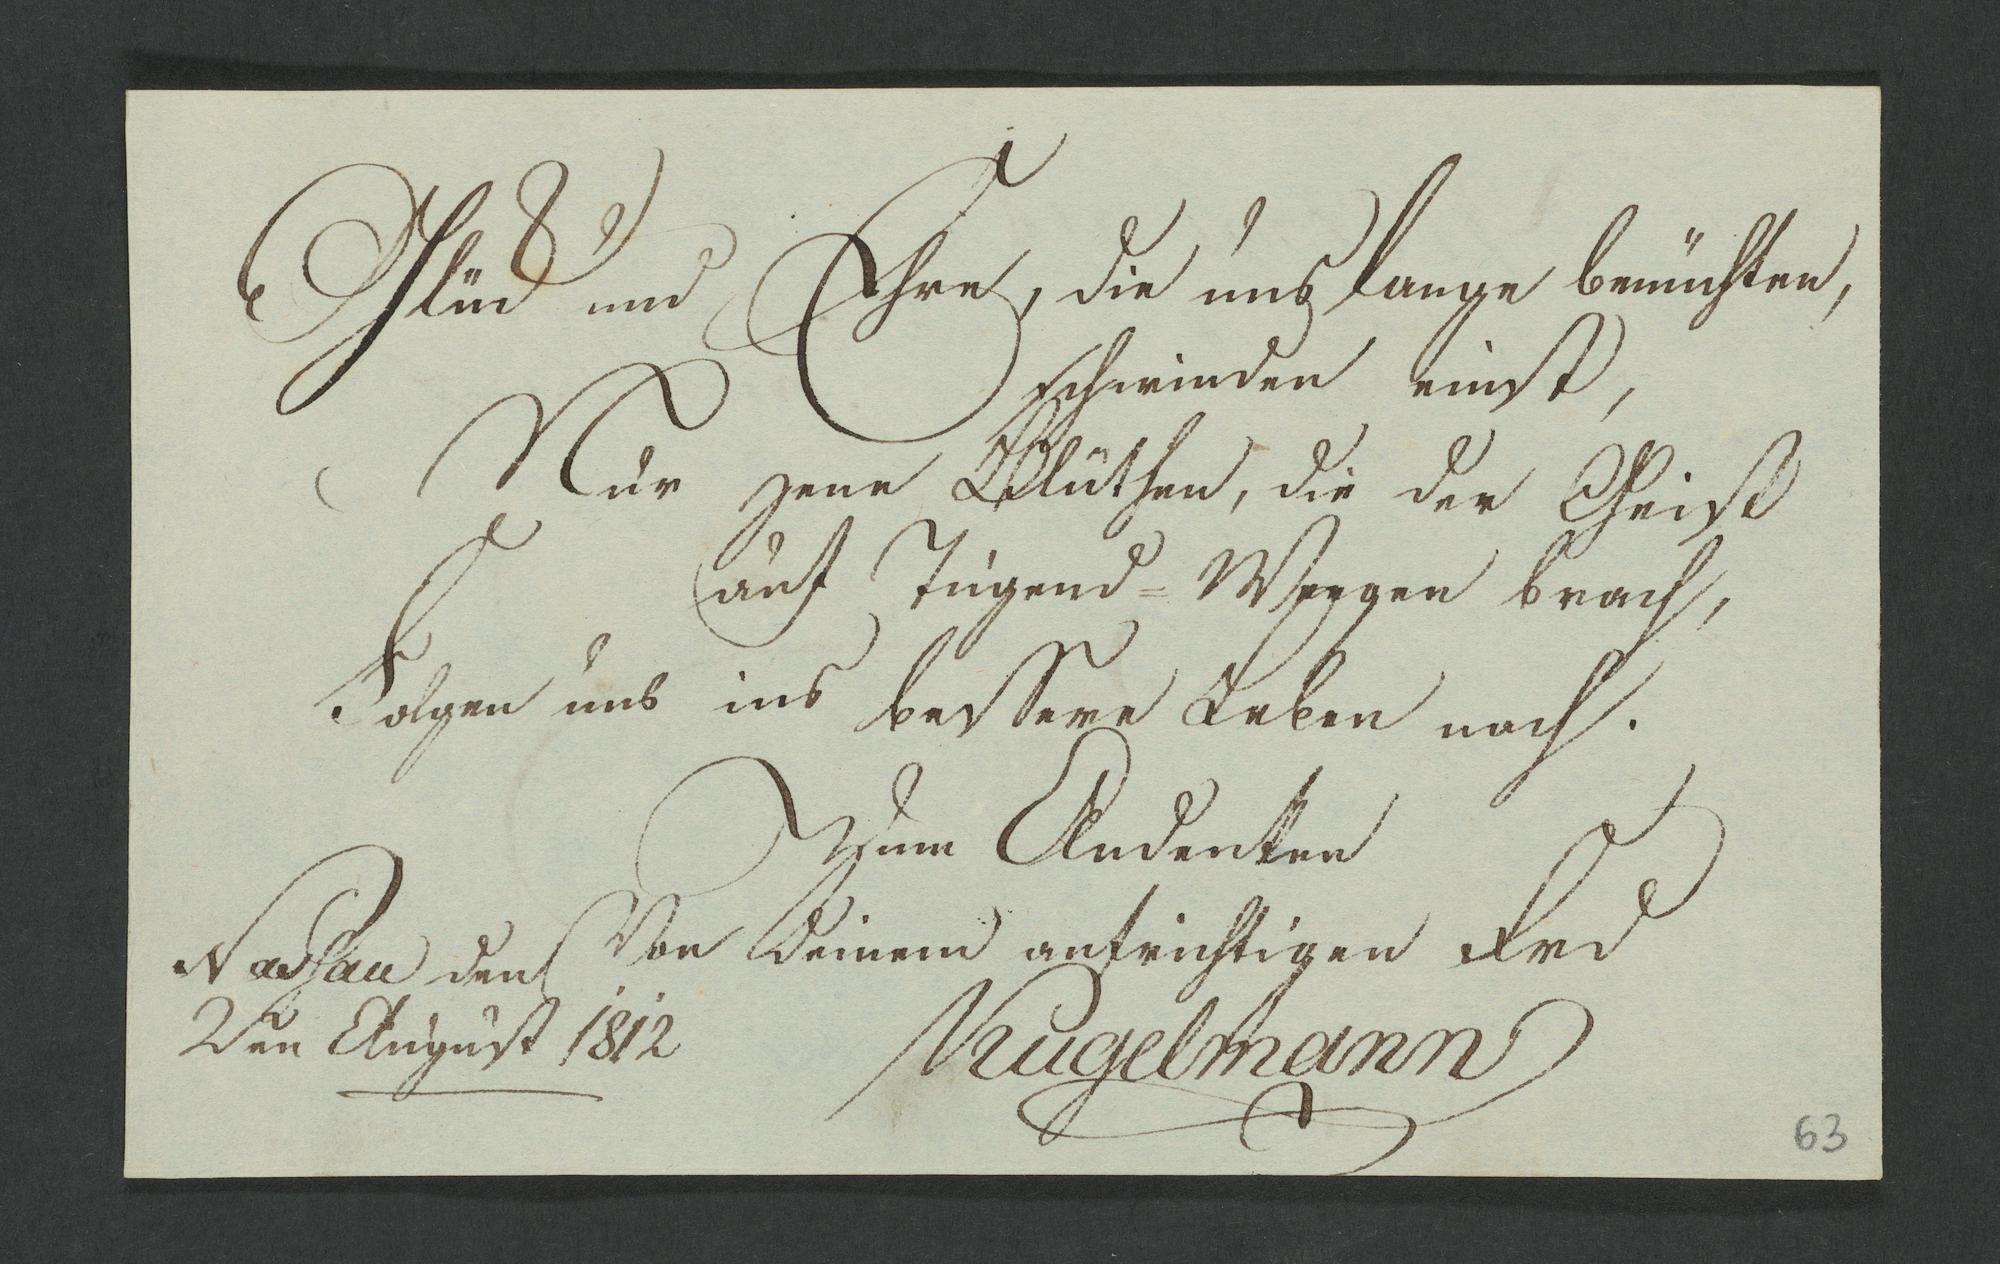 Glück und Ehre, die uns lange bemühten,
schwinden einst,
Nur jene Blüthen, die der Geist
auf Tugend=Weegen brach,
Folgen uns ins bessere Leben nach.
Zum Andenken
Von Deinem aufrichtigen Frd
Nassau den
2ten August 1812
Kugelmann
63